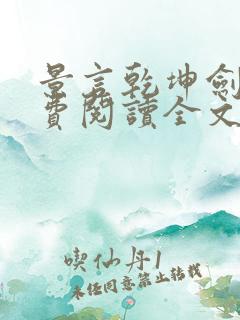 景言乾坤劍
費閱讀全文
喫仙丹1
未经同意禁止转载